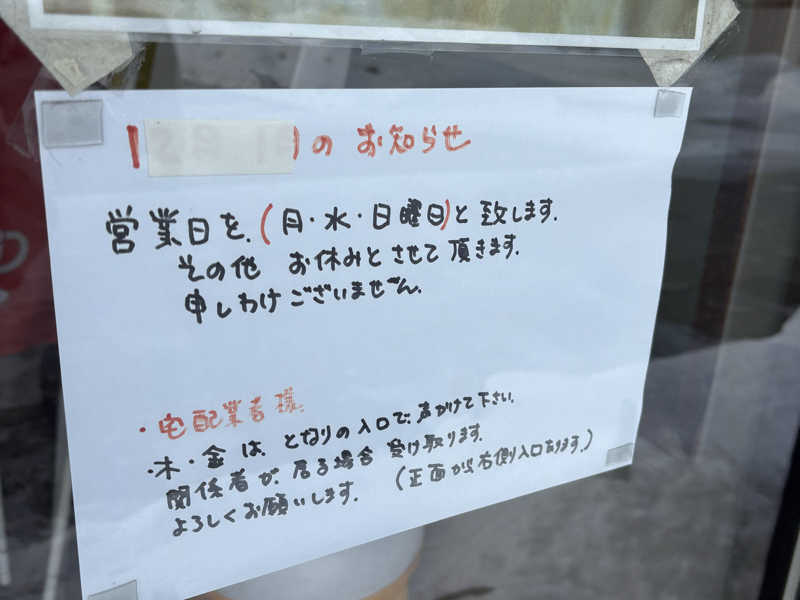 のお知らせ
営業日を、(月・水・日曜日)と致します。
その他 お休みとさせて頂きます。
申しわけございません。
・宅配業者様。
・木・金は、となりの入口で、声かけて下さい。
関係者が、居る場合 受け取ります。
よろしくお願いします。 (正面から右側入口あります。)